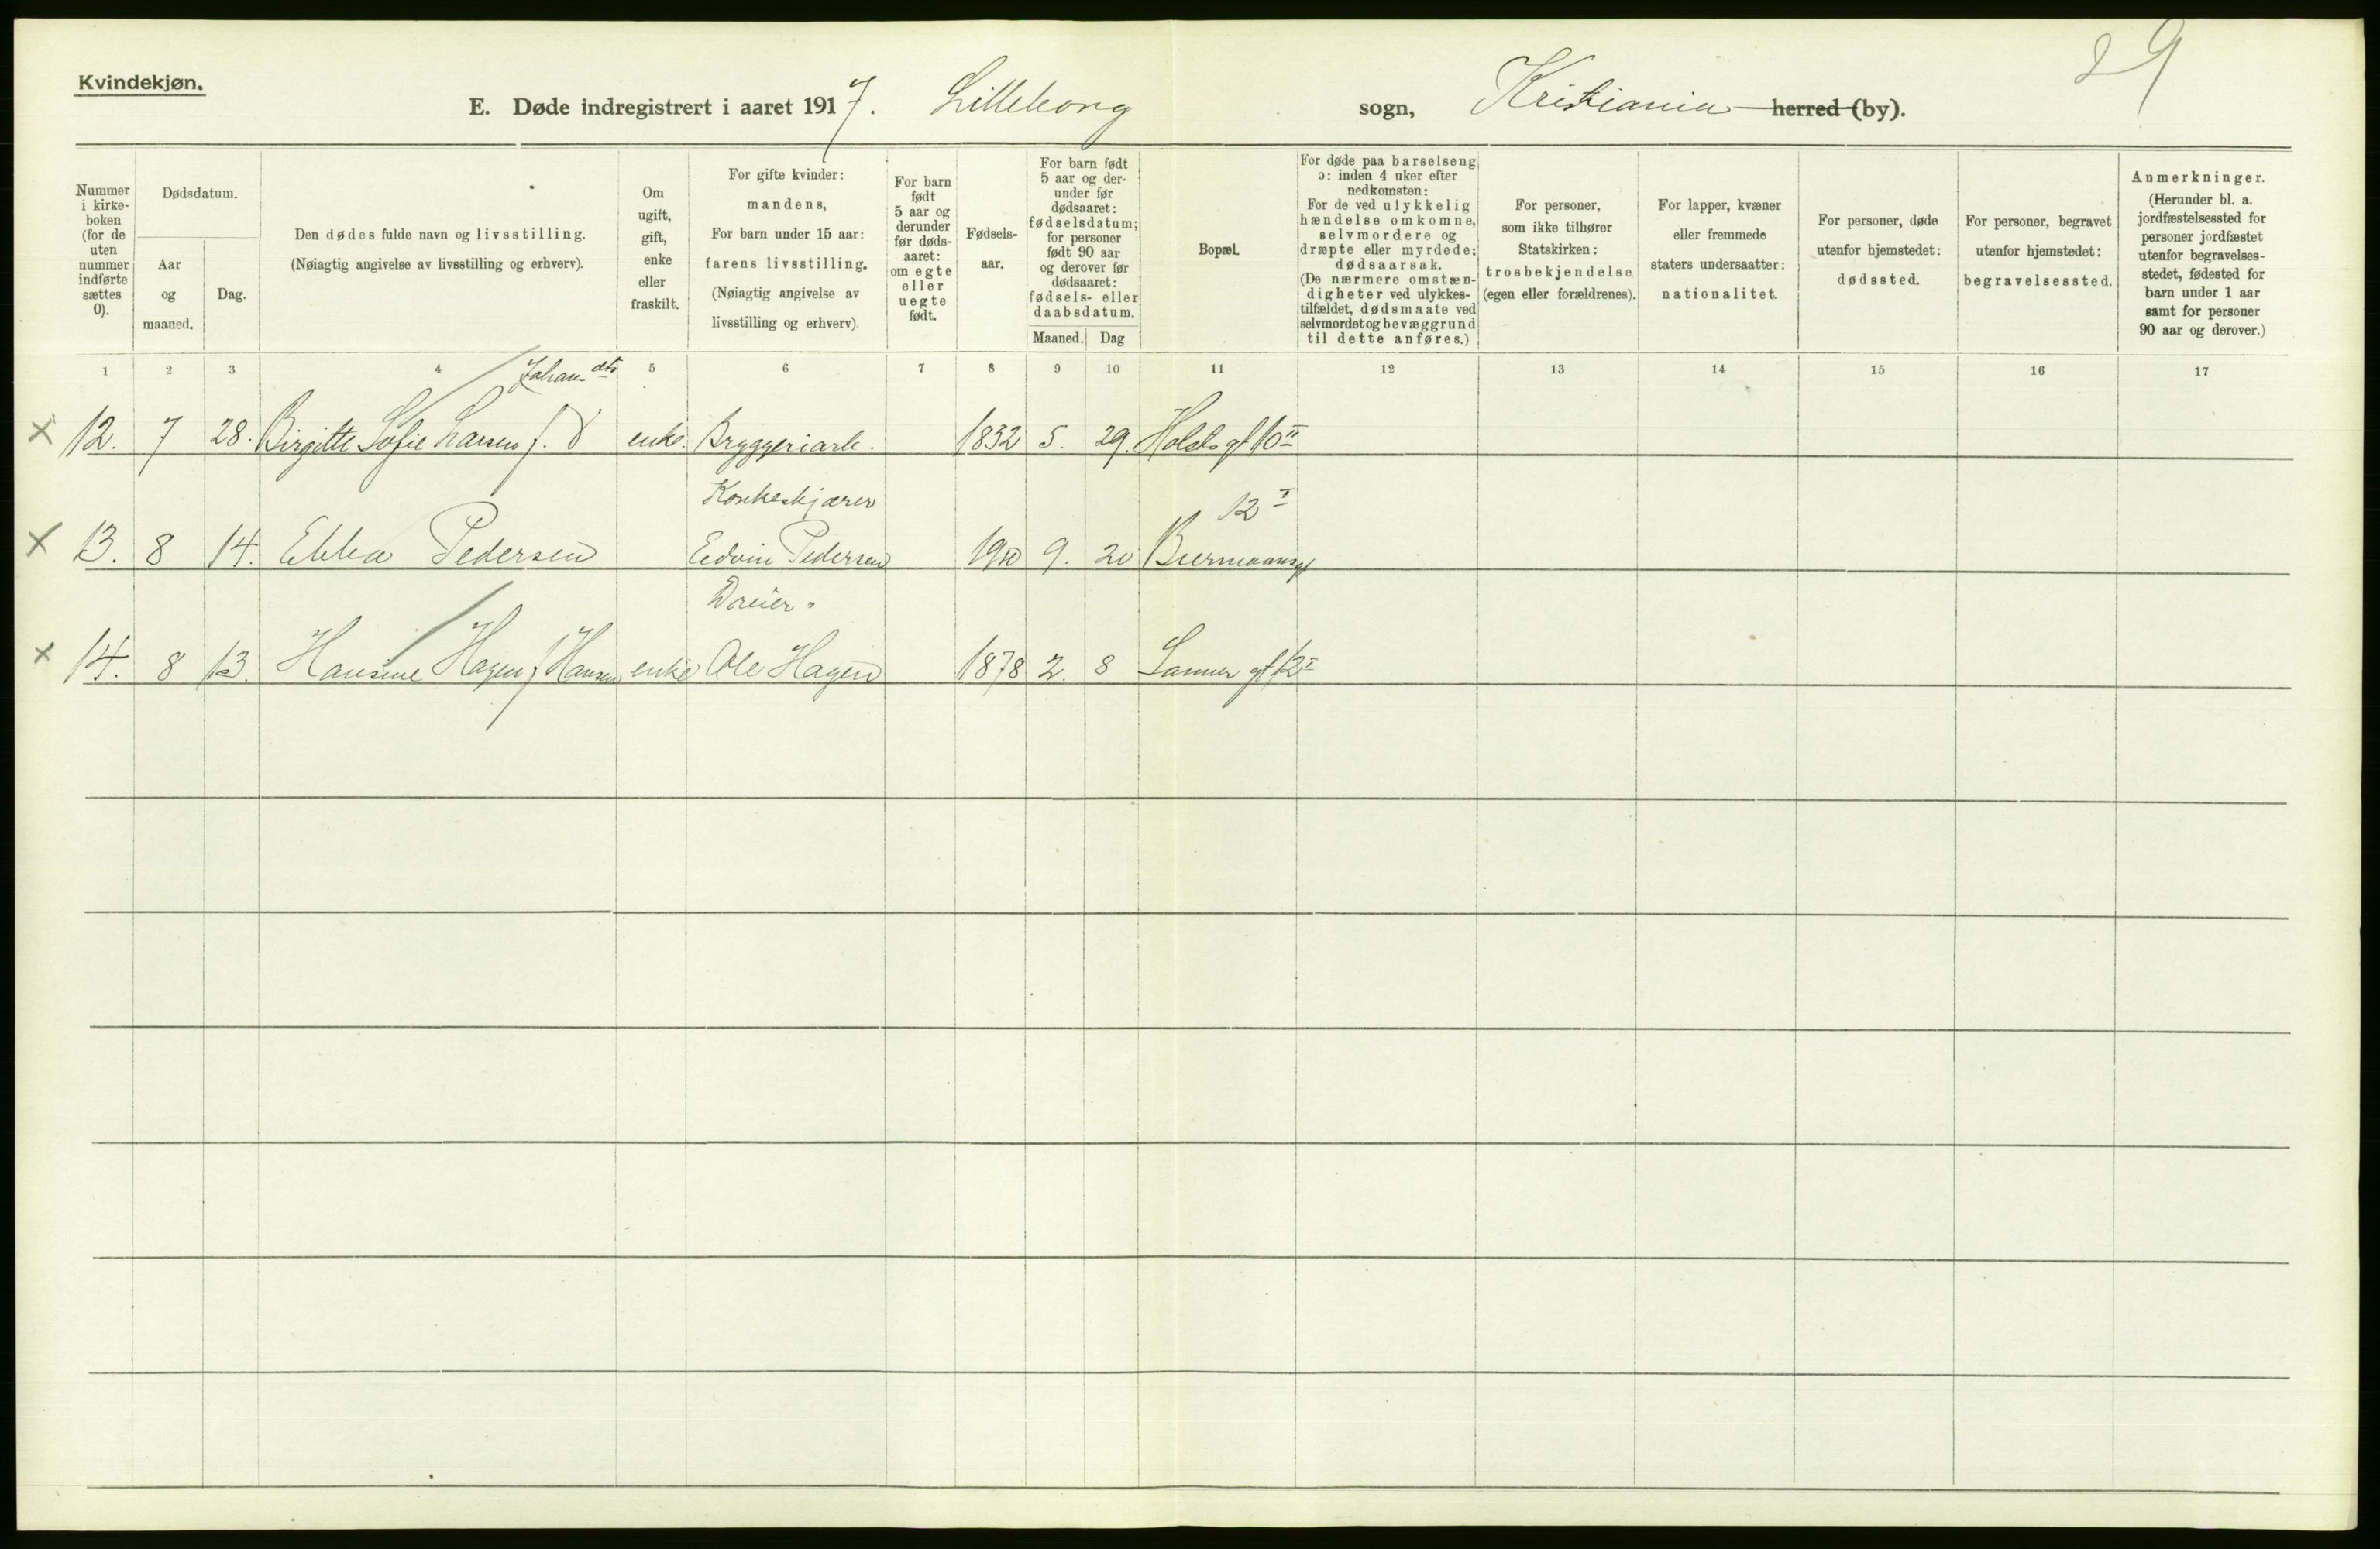 Kvindekjøn.
29
E. Døde indregistrert i aaret 1917. Lilleborg sogn, Kristiania herred (by).
Nummer i kirke-boken (for de uten nummer indførte sættes 0).
Dødsdatum.
Aar og maaned.
Dag.
Den dødes fulde navn og livsstilling.
(Nøiagtig angivelse av livsstilling og erhverv).
Om ugift, gift, enke eller fraskilt.
For gifte kvinder: mandens,
For barn under 15 aar: farens livsstilling.
(Nøiagtig angivelse av livsstilling og erhverv).
For barn født 5 aar og derunder før døds-aaret: om egte eller uegte født.
Fødsels-aar.
For barn født 5 aar og der-under før dødsaaret: fødselsdatum; for personer født 90 aar og derover før dødsaaret: fødsels- eller daabsdatum.
Maaned. Dag
Bopæl.
For døde paa barselseng ɔ: inden 4 uker efter nedkomsten:
For de ved ulykkelig hændelse omkomne, selvmordere og dræpte eller myrdede: dødsaarsak.
(De nærmere omstæn-digheter ved ulykkes-tilfældet, dødsmaate ved selvmordet og bevæggrund til dette anføres.)
For personer, som ikke tilhører Statskirken: trosbekjendelse (egen eller forældrenes).
For lapper, kvæner eller fremmede staters undersaatter: nationalitet.
For personer, døde utenfor hjemstedet: dødssted.
For personer, begravet utenfor hjemstedet: begravelsessted.
Anmerkninger.
(Herunder bl. a. jordfæstelsessted for personer jordfæstet utenfor begravelses-stedet, fødested for barn under 1 aar samt for personer 90 aar og derover.)
1 2 3 4 5 6 7 8 9 10 11 12 13 14 15 16 17
Johans dtr
x 12. 7 28. Birgitte Sofie Larsen f. enke. Bryggeriarb. 1832 5. 29. Holsts gt 10 II
Korkeskjærer 12 I
x 13. 8 14. Ebba Pedersen Edvin Pedersen 1910 9. 20 Biermannsgt
Dreier
x 14. 8 13. Hansine Hagen f Hansen enke Ole Hagen 1878 2. 8 Sanner gt 12 I